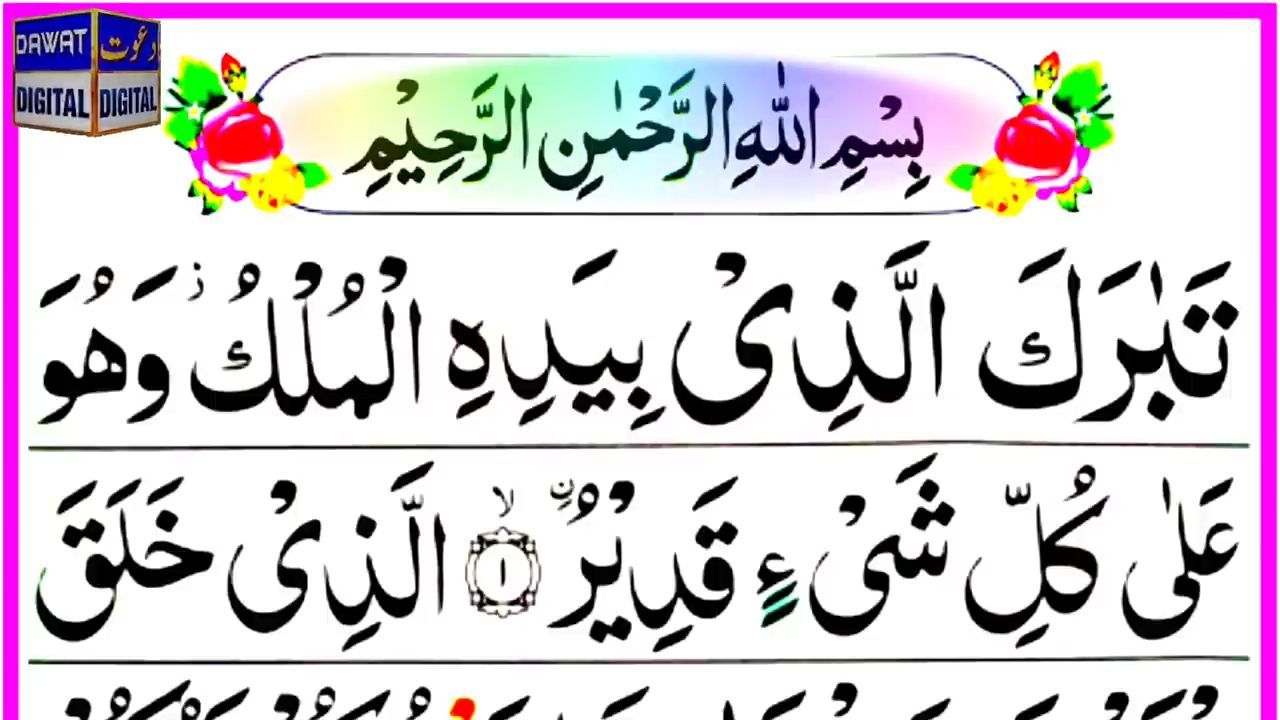 DAWAT دعوت
DIGITAL DIGITAL
بِسْمِ اللّٰهِ الرَّحْمٰنِ الرَّحِيْمِ
تَبٰرَكَ الَّذِیْ بِيَدِهِ الْمُلْكُ ؗ وَهُوَ
عَلٰى كُلِّ شَیْءٍ قَدِيْرُۨ ۙ ۝۱ الَّذِیْ خَلَقَ